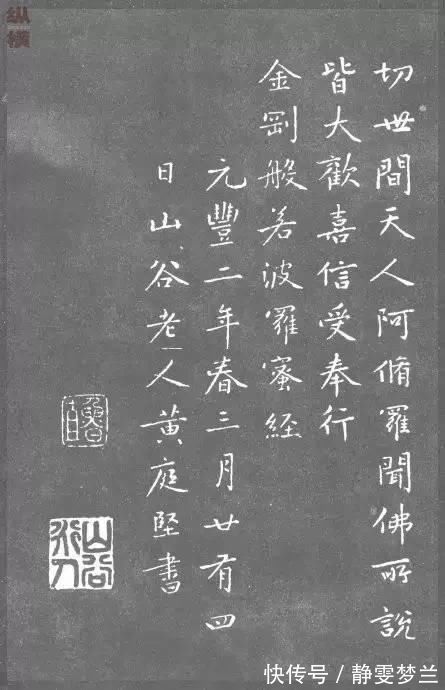 纵横
切世間天人阿脩羅聞佛所說
皆大歡喜信受奉行
金剛般若波羅蜜經
元豐二年春三月廿有四
日山谷老人黃庭堅書
快传号/静雯梦兰